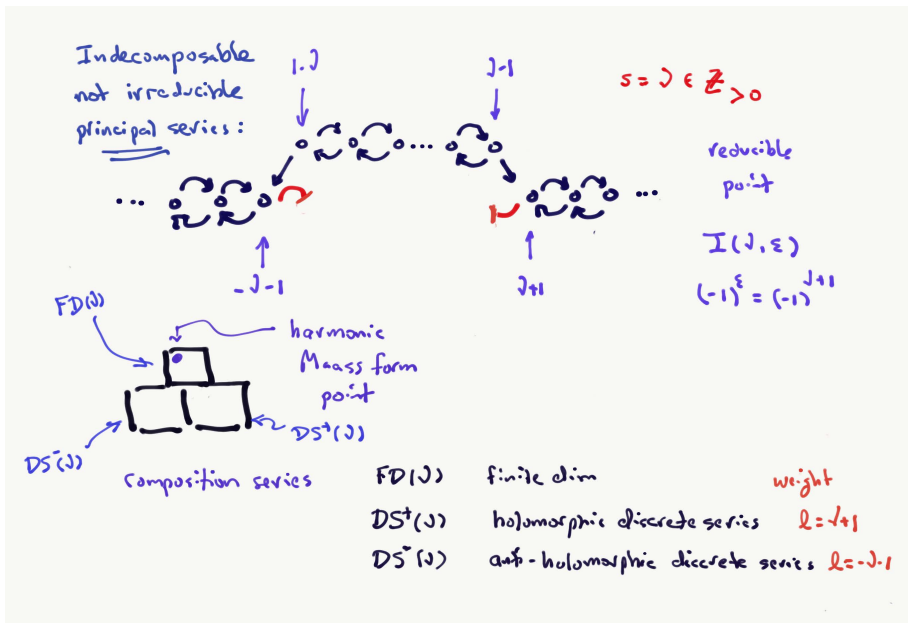 Indecomposable
not irreducible
principal series:
1-ν
ν-1
s = ν ∈ ℤ_{>0}
reducible
point
I(ν, ε)
(-1)^ε = (-1)^{ν+1}
...
...
...
-ν-1
ν+1
FD(ν)
harmonic
Maass form
point
DS⁻(ν)
DS⁺(ν)
composition series
FD(ν) finite dim
weight
DS⁺(ν) holomorphic discrete series ℓ=ν+1
DS⁻(ν) anti-holomorphic discrete series ℓ=-ν-1